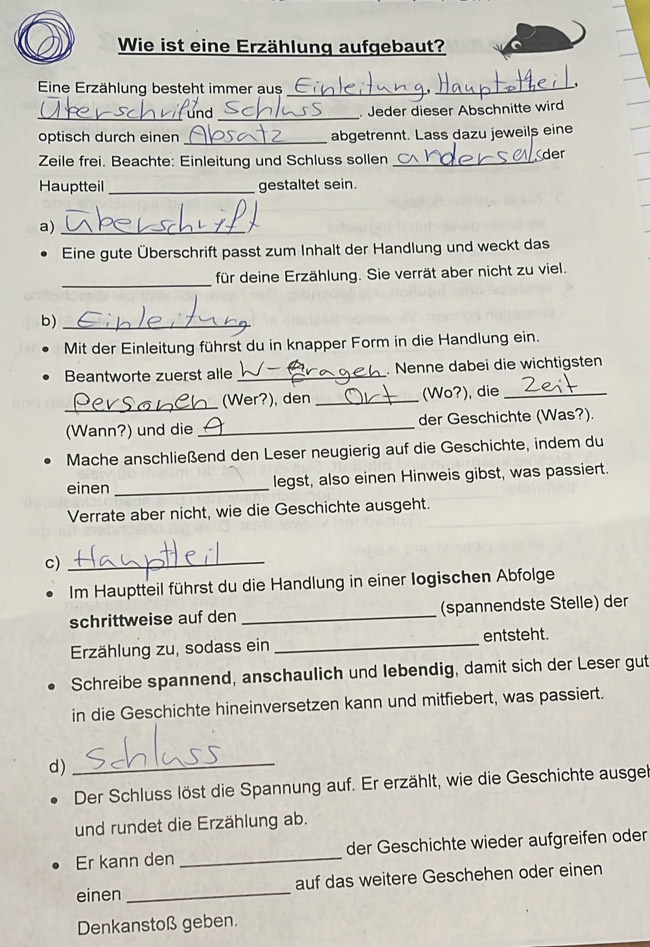 Wie ist eine Erzählung aufgebaut?
Eine Erzählung besteht immer aus Einleitung, Hauptteil,
Überschrift und Schluss. Jeder dieser Abschnitte wird
optisch durch einen Absatz abgetrennt. Lass dazu jeweils eine
Zeile frei. Beachte: Einleitung und Schluss sollen anders als der
Hauptteil ____________ gestaltet sein.
a) Überschrift
• Eine gute Überschrift passt zum Inhalt der Handlung und weckt das
____________ für deine Erzählung. Sie verrät aber nicht zu viel.
b) Einleitung
• Mit der Einleitung führst du in knapper Form in die Handlung ein.
• Beantworte zuerst alle W-Fragen. Nenne dabei die wichtigsten
Personen (Wer?), den Ort (Wo?), die Zeit
(Wann?) und die A____________ der Geschichte (Was?).
• Mache anschließend den Leser neugierig auf die Geschichte, indem du
einen ____________ legst, also einen Hinweis gibst, was passiert.
Verrate aber nicht, wie die Geschichte ausgeht.
c) Hauptteil
• Im Hauptteil führst du die Handlung in einer logischen Abfolge
schrittweise auf den ____________ (spannendste Stelle) der
Erzählung zu, sodass ein ____________ entsteht.
• Schreibe spannend, anschaulich und lebendig, damit sich der Leser gut
in die Geschichte hineinversetzen kann und mitfiebert, was passiert.
d) Schluss
• Der Schluss löst die Spannung auf. Er erzählt, wie die Geschichte ausgeh
und rundet die Erzählung ab.
• Er kann den ____________ der Geschichte wieder aufgreifen oder
einen ____________ auf das weitere Geschehen oder einen
Denkanstoß geben.